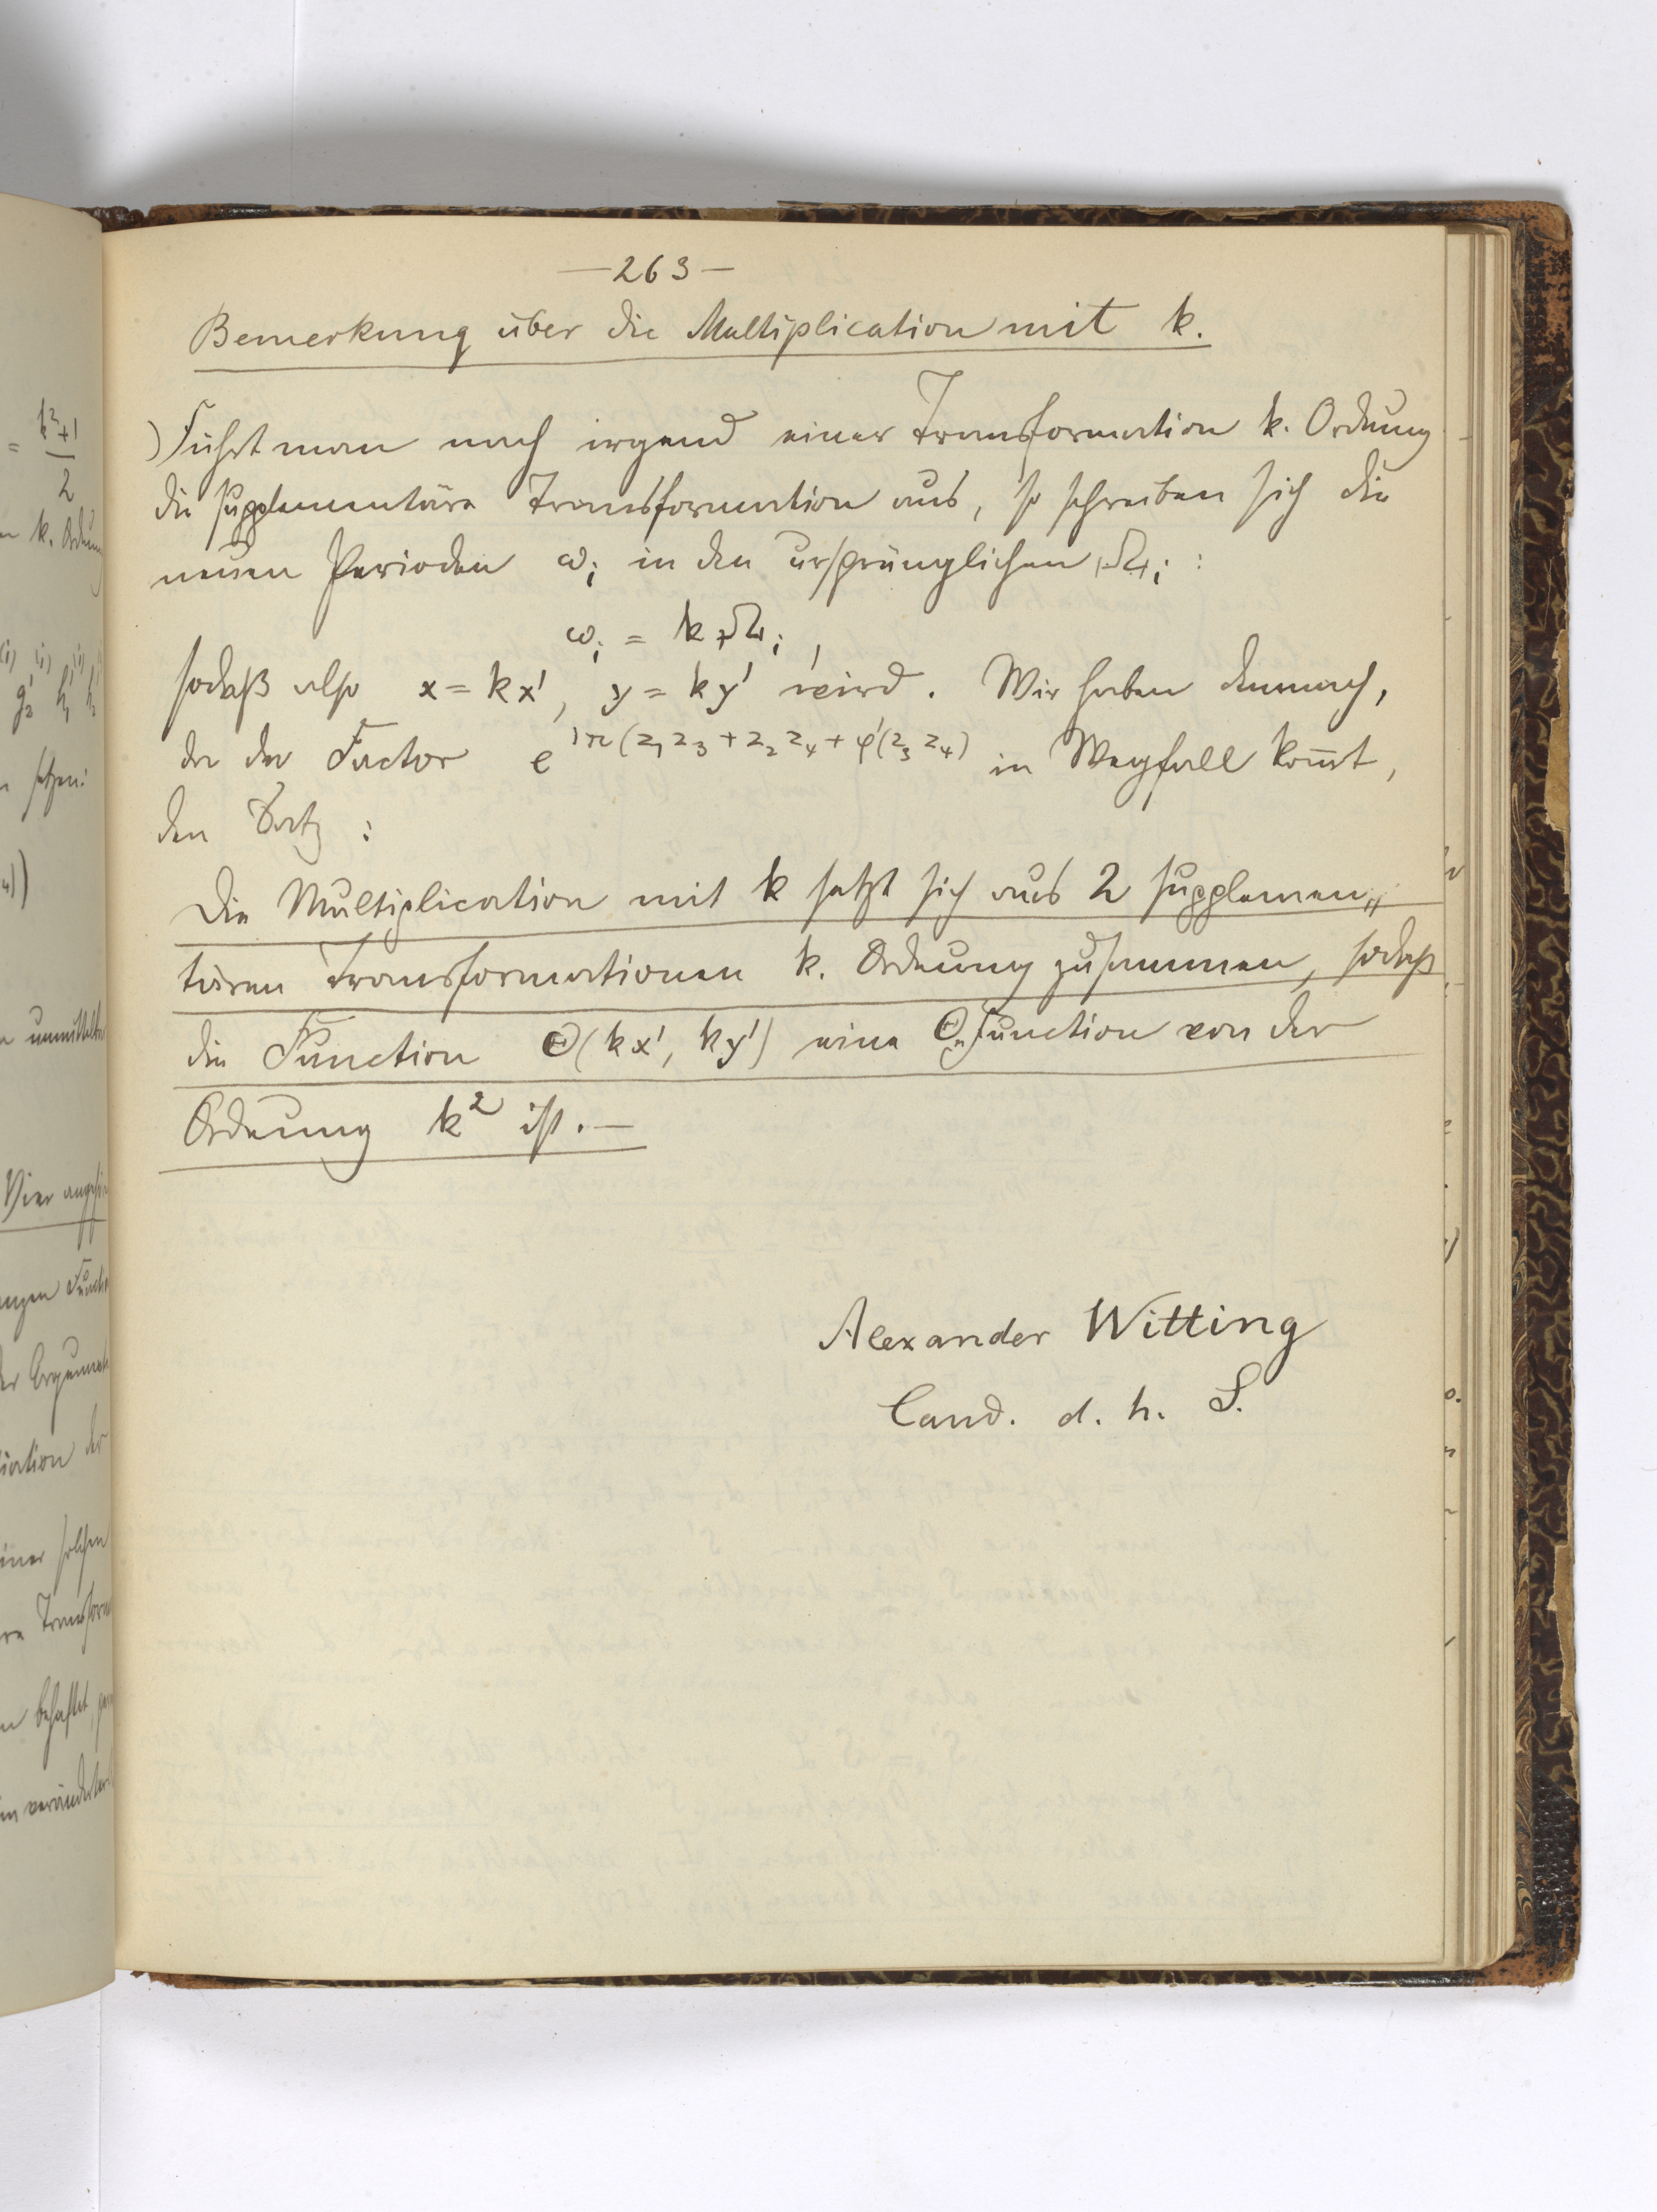 —263—
Bemerkung über die Multiplication mit k.
Führt man nach irgend einer Transformation k. Ordnung
die supplementäre Transformation aus, so schreiben sich die
neuen Perioden ω_i in den ursprünglichen Ω_i :
ω_i = k Ω_i ,
sodaß also x = kx', y = ky' wird. Wir haben demnach,
da der Factor e^{iπ(z_1 z_3 + z_2 z_4 + φ'(z_3 z_4)} in Wegfall kom̄t,
den Satz :
Die Multiplication mit k setzt sich aus 2 supplemen„
tären Transformationen k. Ordnung zusammen, sodaß
die Function Θ(kx', ky') eine Θ„Function von der
Ordnung k² ist. —
Alexander Witting
Cand. d. h. S.
= k²+1
2
k. Ordnung
setzen:
Vier
einer solchen
behaftet,